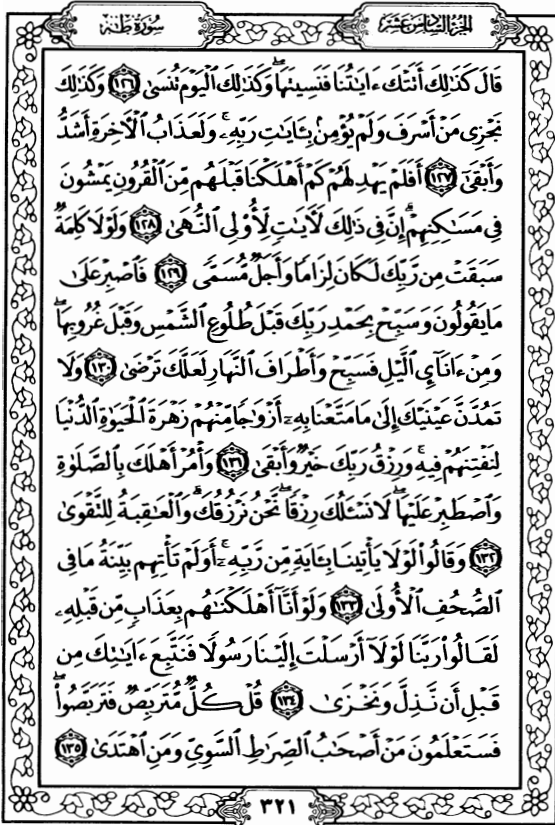 سُورَةُ طه
الجزء السادس عشر
قَالَ كَذَٰلِكَ أَتَتْكَ ءَايَٰتُنَا فَنَسِيتَهَا ۖ وَكَذَٰلِكَ ٱلْيَوْمَ تُنسَىٰ ١٢٦ وَكَذَٰلِكَ
نَجْزِى مَنْ أَسْرَفَ وَلَمْ يُؤْمِنۢ بِـَٔايَٰتِ رَبِّهِۦ ۚ وَلَعَذَابُ ٱلْءَاخِرَةِ أَشَدُّ
وَأَبْقَىٰٓ ١٢٧ أَفَلَمْ يَهْدِ لَهُمْ كَمْ أَهْلَكْنَا قَبْلَهُم مِّنَ ٱلْقُرُونِ يَمْشُونَ
فِى مَسَٰكِنِهِمْ ۗ إِنَّ فِى ذَٰلِكَ لَءَايَٰتٍ لِّأُو۟لِى ٱلنُّهَىٰ ١٢٨ وَلَوْلَا كَلِمَةٌ
سَبَقَتْ مِن رَّبِّكَ لَكَانَ لِزَامًا وَأَجَلٌ مُّسَمًّى ١٢٩ فَٱصْبِرْ عَلَىٰ
مَا يَقُولُونَ وَسَبِّحْ بِحَمْدِ رَبِّكَ قَبْلَ طُلُوعِ ٱلشَّمْسِ وَقَبْلَ غُرُوبِهَا ۖ
وَمِنْ ءَانَآئِ ٱلَّيْلِ فَسَبِّحْ وَأَطْرَافَ ٱلنَّهَارِ لَعَلَّكَ تَرْضَىٰ ١٣٠ وَلَا
تَمُدَّنَّ عَيْنَيْكَ إِلَىٰ مَا مَتَّعْنَا بِهِۦٓ أَزْوَٰجًا مِّنْهُمْ زَهْرَةَ ٱلْحَيَوٰةِ ٱلدُّنْيَا
لِنَفْتِنَهُمْ فِيهِ ۚ وَرِزْقُ رَبِّكَ خَيْرٌ وَأَبْقَىٰ ١٣١ وَأْمُرْ أَهْلَكَ بِٱلصَّلَوٰةِ
وَٱصْطَبِرْ عَلَيْهَا ۖ لَا نَسْـَٔلُكَ رِزْقًا ۖ نَّحْنُ نَرْزُقُكَ ۗ وَٱلْعَٰقِبَةُ لِلتَّقْوَىٰ
١٣٢ وَقَالُوا۟ لَوْلَا يَأْتِينَا بِـَٔايَةٍ مِّن رَّبِّهِۦٓ ۚ أَوَلَمْ تَأْتِهِم بَيِّنَةُ مَا فِى
ٱلصُّحُفِ ٱلْأُولَىٰ ١٣٣ وَلَوْ أَنَّآ أَهْلَكْنَٰهُم بِعَذَابٍ مِّن قَبْلِهِۦ
لَقَالُوا۟ رَبَّنَا لَوْلَآ أَرْسَلْتَ إِلَيْنَا رَسُولًا فَنَتَّبِعَ ءَايَٰتِكَ مِن
قَبْلِ أَن نَّذِلَّ وَنَخْزَىٰ ١٣٤ قُلْ كُلٌّ مُّتَرَبِّصٌ فَتَرَبَّصُوا۟ ۖ
فَسَتَعْلَمُونَ مَنْ أَصْحَٰبُ ٱلصِّرَٰطِ ٱلسَّوِىِّ وَمَنِ ٱهْتَدَىٰ ١٣٥
٣٢١